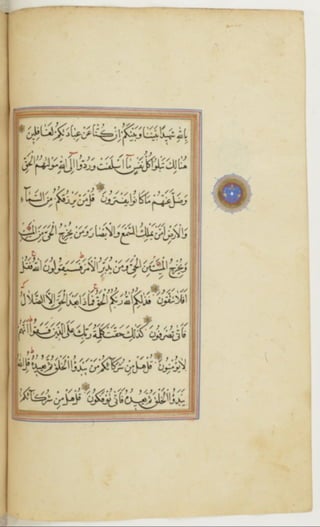 بِاللّٰهِ شَهِيدًا بَيْنَنَا وَبَيْنَكُمْ اِنْ كُنَّا عَنْ عِبَادَتِكُمْ لَغَافِلِينَ
هُنَالِكَ تَبْلُوا كُلُّ نَفْسٍ مَا اَسْلَفَتْ وَرُدُّوا اِلَى اللّٰهِ مَوْلٰيهُمُ الْحَقِّ
وَضَلَّ عَنْهُمْ مَا كَانُوا يَفْتَرُونَ قُلْ مَنْ يَرْزُقُكُمْ مِنَ السَّمَاءِ
وَالْاَرْضِ اَمَّنْ يَمْلِكُ السَّمْعَ وَالْاَبْصَارَ وَمَنْ يُخْرِجُ الْحَيَّ مِنَ الْمَيِّتِ
وَيُخْرِجُ الْمَيِّتَ مِنَ الْحَيِّ وَمَنْ يُدَبِّرُ الْاَمْرَ فَسَيَقُولُونَ اللّٰهُ فَقُلْ
اَفَلَا تَتَّقُونَ فَذٰلِكُمُ اللّٰهُ رَبُّكُمُ الْحَقُّ فَمَاذَا بَعْدَ الْحَقِّ اِلَّا الضَّلَالُ
فَاَنّٰى تُصْرَفُونَ كَذٰلِكَ حَقَّتْ كَلِمَةُ رَبِّكَ عَلَى الَّذِينَ فَسَقُوا اَنَّهُمْ
لَا يُؤْمِنُونَ قُلْ هَلْ مِنْ شُرَكَائِكُمْ مَنْ يَبْدَؤُا الْخَلْقَ ثُمَّ يُعِيدُهُ قُلِ اللّٰهُ
يَبْدَؤُا الْخَلْقَ ثُمَّ يُعِيدُهُ فَاَنّٰى تُؤْفَكُونَ قُلْ هَلْ مِنْ شُرَكَائِكُمْ